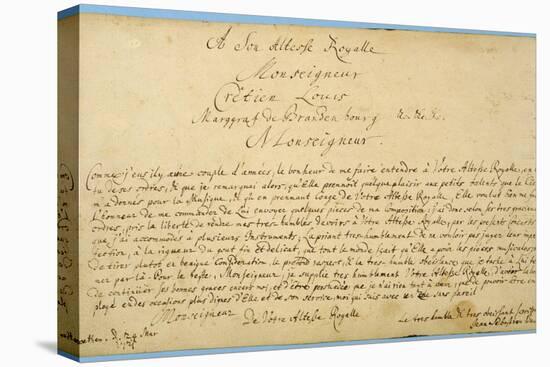 A Son Altesse Royalle
Monseigneur
Crêtien Louis
Marggraf de Brandenbourg &c. &c. &c.
Monseigneur.
Comme j'eus il y a une couple d'années, le bonheur de me faire entendre à Votre Altesse Royalle, en
tu de ses ordres, & que je remarquai alors, qu'Elle prennoit quelque plaisir aux petits talents que le Ciel
m'a donnés pour la Musique, & qu'en prennant Conge de Votre Altesse Royalle, Elle voulut bien me
l'honneur de me commander de Lui envoyer quelques pieces de ma Composition: j'ai donc selon ses tres gracieux
ordres, pris la liberté de rendre mes tres-humbles devoirs à Votre Altesse Royalle, par les presents Concerts
que j'ai accommodés à plusieurs Instruments; La priant tres-humblement de ne vouloir pas juger leur imper
fection, à la rigueur du gout fin et delicat, que tout le monde sçait qu'Elle a pour les pieces musicales
de tirer plutot en benigne Consideration, le profond respect, & la tres-humble obeissance que je tache à Lui te
ner par là. Pour le reste, Monseigneur, je supplie tres humblement Votre Altesse Royalle, d'avoir la bon
de continüer ses bonnes graces envers moi, et d'être persuadée que je n'ai rien tant à cœur, que de pouvoir être em
ployé en des occasions plus dignes d'Elle et de son service, moi qui suis avec un zele sans pareil
Monseigneur
De Votre Altesse Royalle
Le tres humble & tres obeissant serviteur
Jean Sebastian
d. 24 Mar
1721